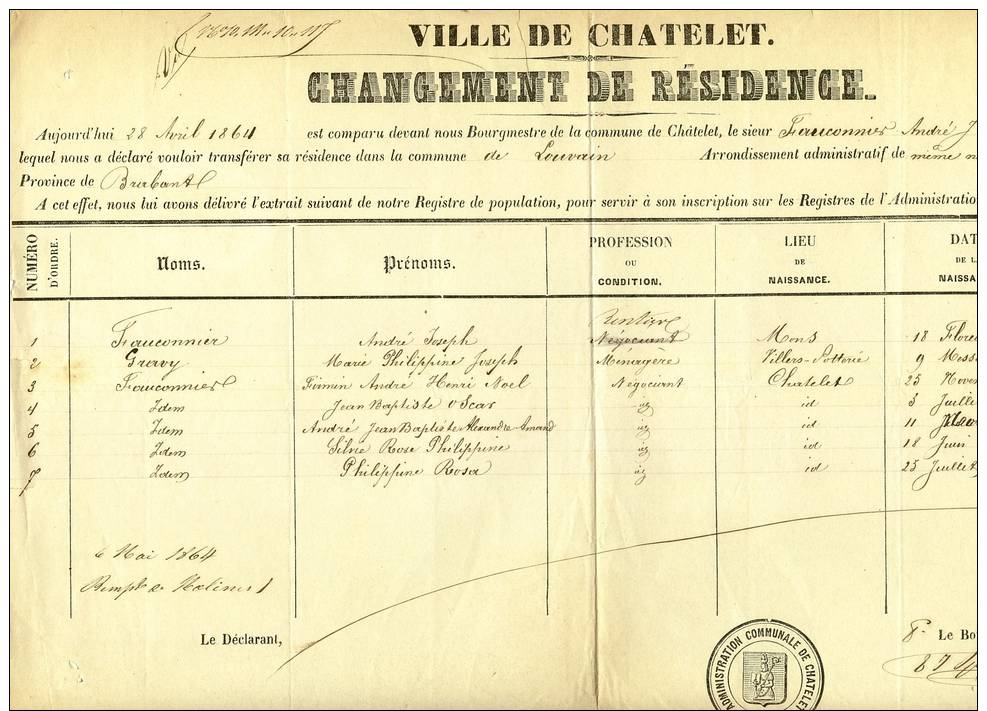 VILLE DE CHATELET.
CHANGEMENT DE RÉSIDENCE.
Aujourd'hui 28 Avril 1864 est comparu devant nous Bourgmestre de la commune de Châtelet, le sieur Fauconnier André J
lequel nous a déclaré vouloir transférer sa résidence dans la commune de Louvain Arrondissement administratif de même n
Province de Brabant
A cet effet, nous lui avons délivré l'extrait suivant de notre Registre de population, pour servir à son inscription sur les Registres de l'Administratio
NUMÉRO D'ORDRE. Noms. Prénoms. PROFESSION OU CONDITION. LIEU DE NAISSANCE. DAT DE L NAISSA
Rentier
1 Fauconnier André Joseph Négociant Mons 18 Flore
2 Gravy Marie Philippine Joseph Ménagère Villers-Potterie 9 Mess
3 Fauconnier Firmin André Henri Noel Négociant Chatelet 25 Nove
4 Idem Jean Baptiste Oscar id 3 Juille
5 Idem André Jean Baptiste Alexandre Amand id 11
6 Idem Silvie Rose Philippine id 18 Juin
7 Idem Philippine Rosa id 25 Juillet
6 Mai 1864
Le Déclarant,
Le Bo
ADMINISTRATION COMMUNALE DE CHATELET